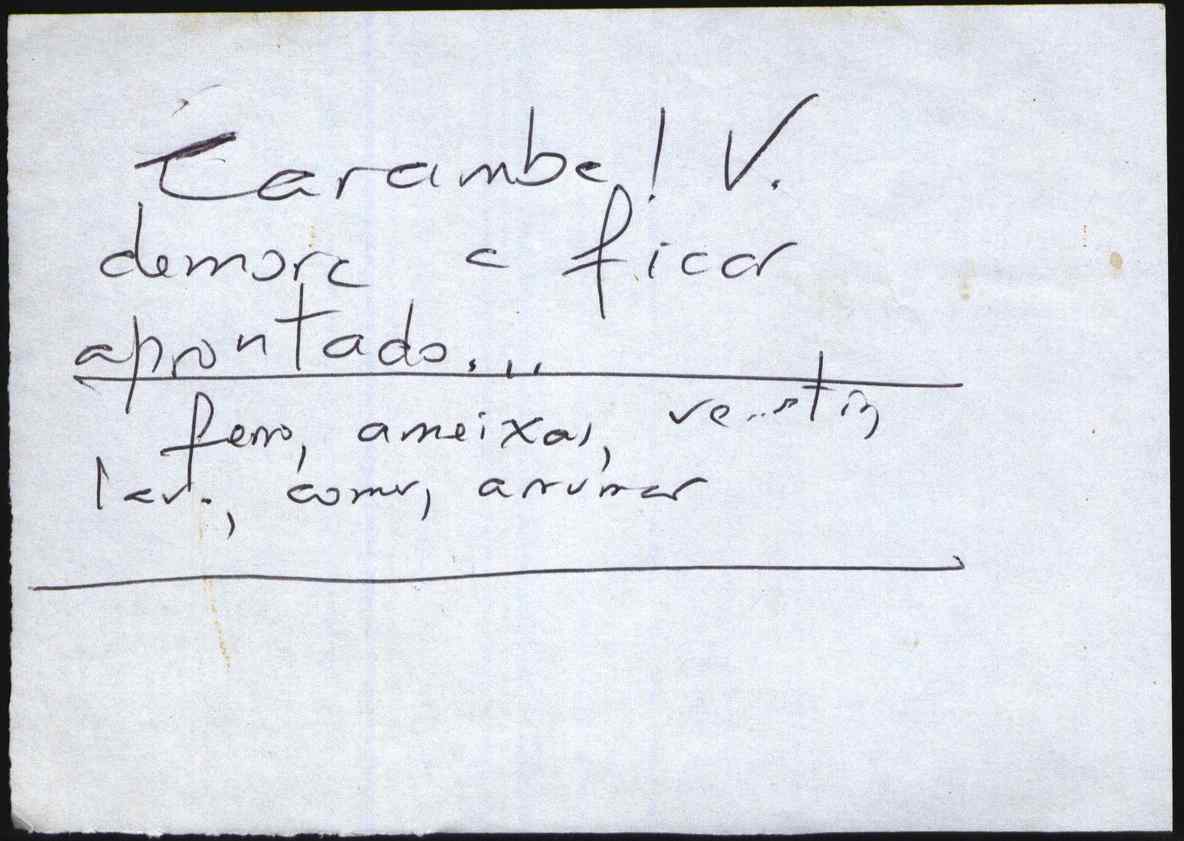 Caramba! V.
demora a ficar
aprontado...
ferro, ameixas, vestir,
lav., comer, arrumar